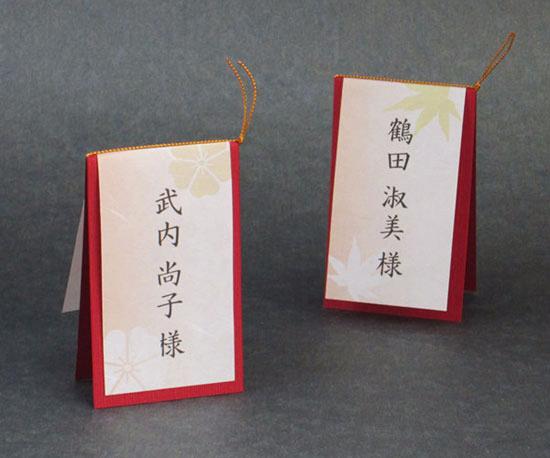 武内 尚子 様
鶴田 淑美 様